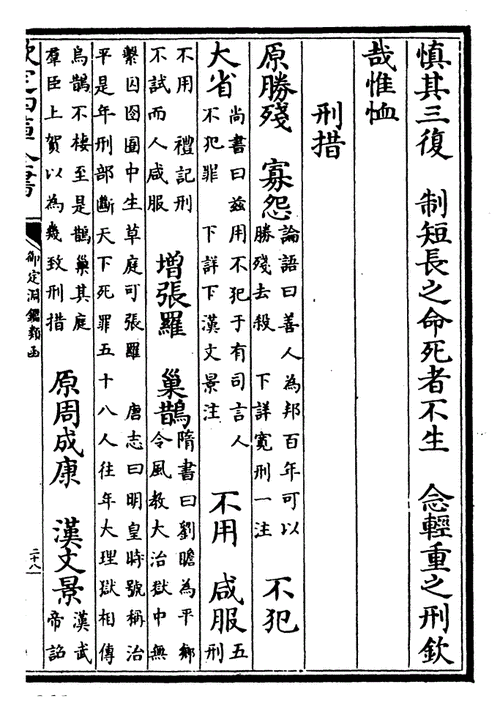 慎其三復　制短長之命死者不生　念輕重之刑欽
哉惟恤
刑措
原勝殘　寡怨
論語曰善人為邦百年可以
勝殘去殺　下詳寬刑一注
不犯
大省
尚書曰兹用不犯于有司言人
不犯罪　下詳下漢文景注
不用　咸服
五
刑
不用　禮記刑
不試而人咸服
增張羅　巢鵲
隋書曰劉瞻為平鄉
令風教大治獄中無
繫囚囹圄中生草庭可張羅　唐志曰明皇時號稱治
平是年刑部斷天下死罪五十八人往年大理獄相傳
烏鵲不棲至是鵲巢其庭
羣臣上賀以為幾致刑措
原周成康　漢文景
漢武
帝詔
欽定四庫全書
御定淵鑑類函
二十八